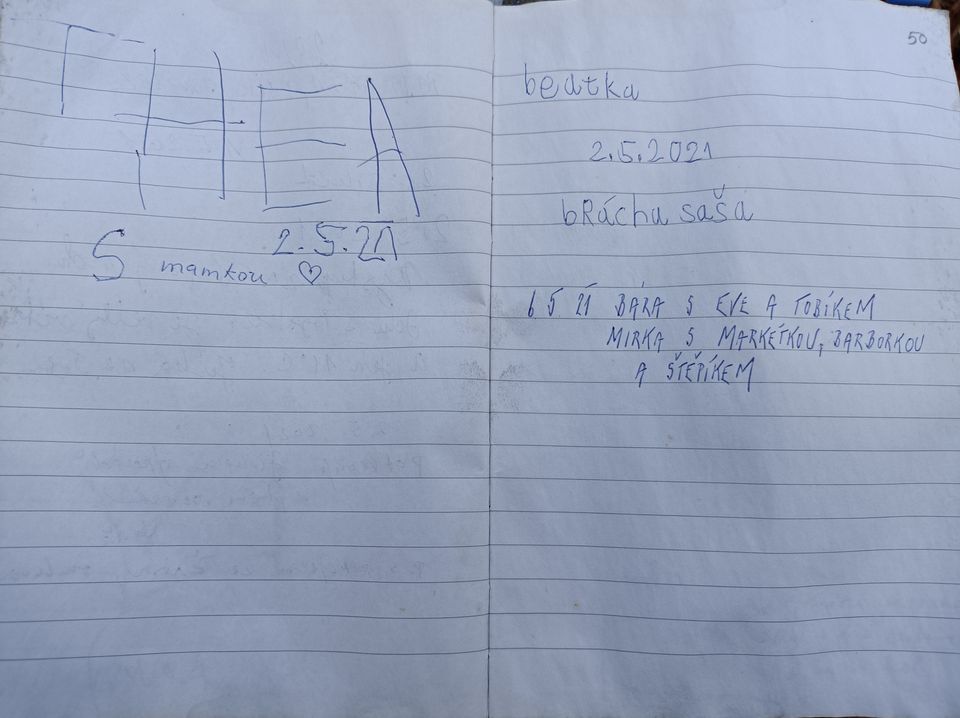 THEA
2.5.21
S mamkou ♡
50
beatka
2.5.2021
bRácha saša
6 5 21 BÁRA S EVE A TOBÍKEM
MIRKA S MARKÉTKOU, BARBORKOU
A ŠTĚPÍKEM